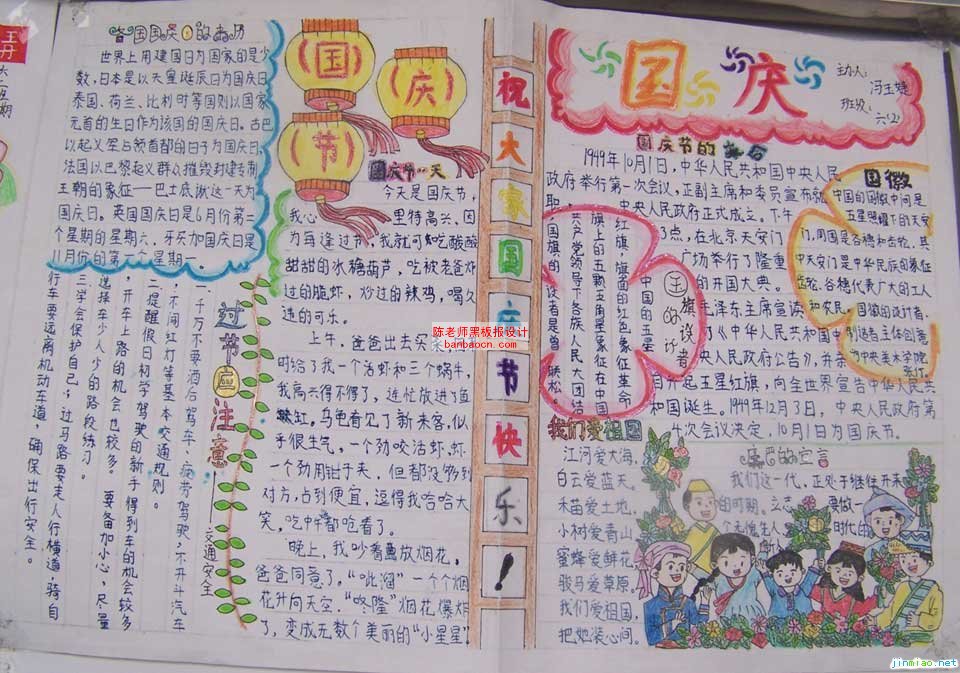 各国国庆日的来历
世界上用建国日为国家的是少
数,日本是以天皇诞辰日为国庆日
泰国、荷兰、比利时等国则以国家
元首的生日作为该国的国庆日。古巴
以起义军占领首都的日子为国庆日,
法国以巴黎起义群众摧毁封建制
王朝的象征——巴士底狱这一天为
国庆日。英国国庆日是6月份第二
个星期的星期六,牙买加国庆日是
月份的第一个星期一。
国
庆
节
国庆节一天
今天是国庆节,
我心里特高兴、因
为每逢过节,我就可以吃酸酸
甜甜的冰糖葫芦,吃被老爸炸
过的脆虾,炒过的辣鸡,喝久
违的可乐。
上午,爸爸出去买菜
时给了我一个活虾和三个蜗牛,
我高兴得不得了,连忙放进了鱼
缸。乌龟看见了新来客,似
乎很生气,一个劲咬活虾,虾
一个劲用钳子夹,但都没够到
对方,占到便宜,逗得我哈哈大
笑。吃中午都呛着了。
晚上,我吵着要放烟花,
爸爸同意了。“呲溜”一个个烟
花升向天空,“咚隆”烟花爆炸
了,变成无数个美丽的“小星星”
过节应注意
交通安全
一千万不要酒后驾车、疲劳驾驶,不开斗汽车
,不闯红灯等基本交通规则。
二提醒假日初学驾驶的新手得到车的机会较多
,开车上路的机会也较多。要备加小心,尽量
选择车少人少的路段练习。
三学会保护自己,过马路要走人行横道,骑自
行车要远离机动车道,确保出行安全。
祝大家国庆节快乐!
国庆
主办人:
冯玉
班级:
六(2)
国庆节的
1949年10月1日,中华人民共和国中央人民
政府举行第一次会议,正副主席和委员宣布就
职,中央人民政府正式成立。下午
3点,在北京天安门
广场举行了隆重
的开国大典。
毛泽东主席宣读
了《中华人民共和国中
央人民政府公告》,并亲
自升起五星红旗,向全世界宣告中华人民共
和国诞生。1949年12月3日,中央人民政府第
4次会议决定,10月1日为国庆节。
国旗的设计者
中国的五星
红旗,旗面的红色象征革命,
旗上的五颗五角星象征在中国
共产党领导下各族人民大团结
国旗的设计者是曾联松。
国徽
中国的国徽中间是
五星照耀下的天安
门,周围是谷穗和齿轮,其
中天安门是中华民族的象征
齿轮、谷穗代表广大的工人
和农民。国徽的设计者,
创造者主体创意
为中央美术学院
张仃。
我们爱祖国
江河爱大海,
白云爱蓝天。
禾苗爱土地,
小树爱青山
蜜蜂爱鲜花,
骏马爱草原。
我们爱祖国,
把她装心间。
的宣言
我们这一代,正处于继往开来
的时期。立志要做一
个无愧于时代的
人
陈老师黑板报设计
banbaocn.com
jinmiao.net